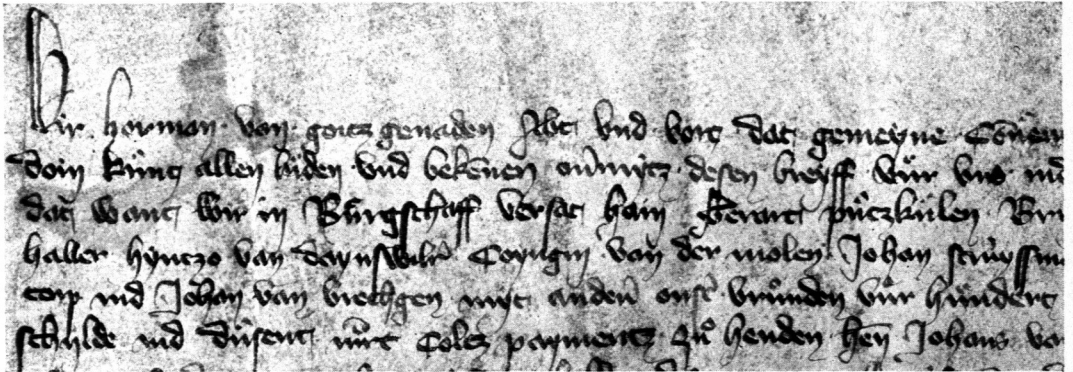 Wir herman van gotz genaden Abt vnd vort dat gemeyne Conuen
doin kunt allen luden vnd bekennen ouermitz desen brieff vur vns ind
dat want wir in Burgschaff versat hain Gerart putzkulen
haller hyntzo van Coyngin van der molen Johan
ind Johan van mit anderen vnsen vrunden vur hundert
schylde ind dusent mrc payments zu henden hern Johans va